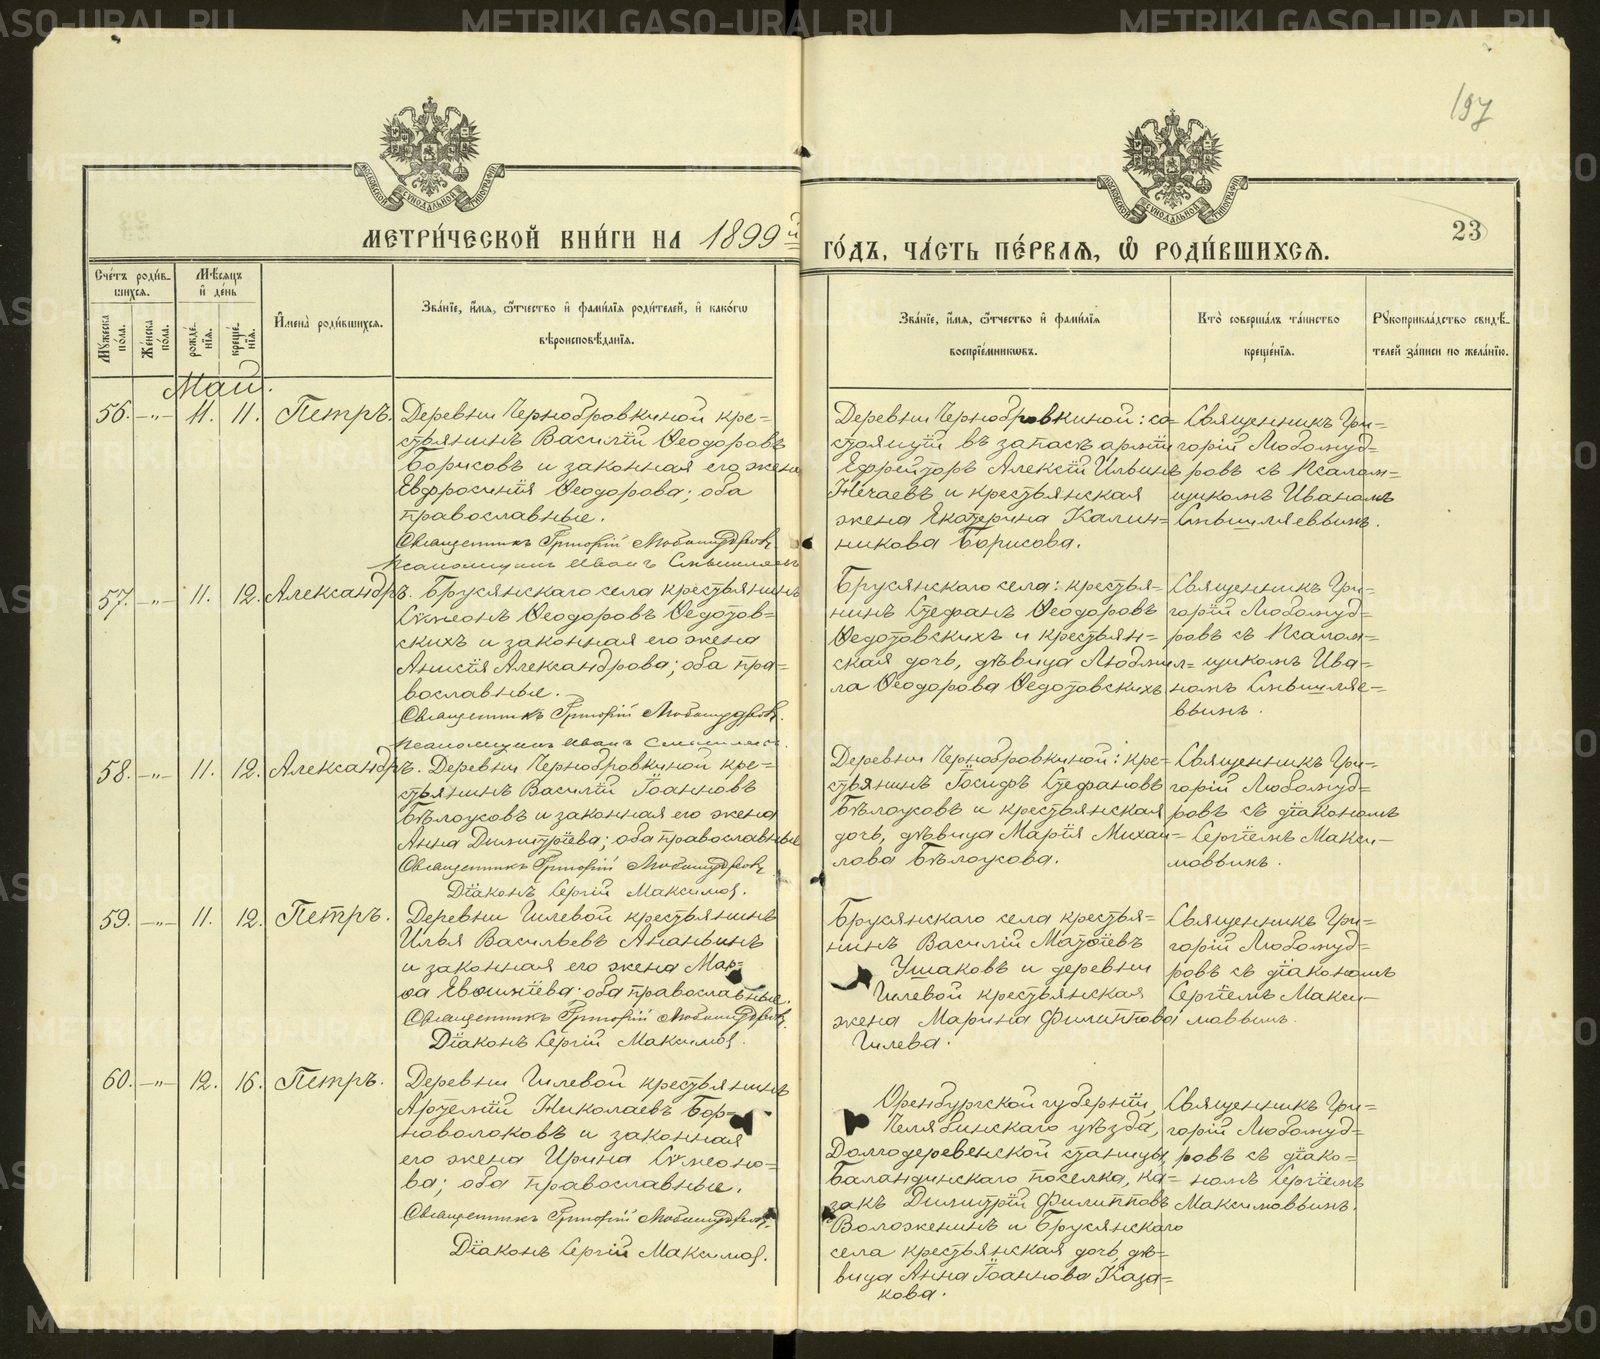 METRIKI.GASO-URAL.RU
197
МОСКОВСКОЙ СѴНОДАЛЬНОЙ ТИПОГРАФІИ
МОСКОВСКОЙ СѴНОДАЛЬНОЙ ТИПОГРАФІИ
23
МЕТРИ́ЧЕСКОЙ КНИ́ГИ НА 1899й ГО́ДЪ, ЧА́СТЬ ПЕ́РВАЯ, Ѽ РОДИ́ВШИХСЯ.
Сче́тъ роди́в-
шихся.
Мѣ́сяцъ
и де́нь
Му́жеска по́ла.
Же́нска по́ла.
рожде́нїя.
креще́нїя.
И҆мена̀ роди́вшихся.
Зва́нїе, и҆́мя, ѻ҆́тчество и҆ фами́лїя роди́телей, и҆ како́гѡ
вѣроисповѣ́данїя.
Зва́нїе, и҆́мя, ѻ҆́тчество и҆ фами́лїя
воспрїе́мниковъ.
Кто̀ соверша́лъ та́инство
креще́нїя.
Рꙋкоприкла́дство свидѣ́-
телей за́писи по жела́нїю.
Май.
56. —„— 11. 11. Петръ.
Деревни Чернобровкиной кре=
стьянинъ Василій Ѳеодоровъ
Борисовъ и законная его жена
Евфросинія Ѳеодорова; оба
православные.
Священникъ Григорій Любомудровъ
Псаломщикъ Иванъ Смышляевъ
Деревни Чернобровкиной: со-
стоящій въ запасѣ арміи
Ефрейторъ Алексій Ильинъ
Нечаевъ и крестьянская
жена Екатерина Калин=
никова Борисова.
Священникъ Гри=
горій Любомуд=
ровъ съ Псалом=
щикомъ Иваномъ
Смышляевымъ.
57. —„— 11. 12. Александръ.
Брусянскаго села крестьянинъ
Сѵмеонъ Ѳеодоровъ Ѳедотов=
скихъ и законная его жена
Анисія Александрова; оба пра=
вославные.
Священникъ Григорій Любомудровъ.
Псаломщикъ Иванъ Смышляевъ.
Брусянскаго села: крестья=
нинъ Стефанъ Ѳеодоровъ
Ѳедотовскихъ и крестьян=
ская дочь, дѣвица Людми=
ла Ѳеодорова Ѳедотовскихъ
Священникъ Гри=
горій Любомуд=
ровъ съ Псалом=
щикомъ Ива=
номъ Смышляе=
вымъ.
58. —„— 11. 12. Александръ.
Деревни Чернобровкиной кре=
стьянинъ Василій Іоанновъ
Бѣлоусовъ и законная его жена
Анна Димитріева; оба православные
Священникъ Григорій Любомудровъ.
Діаконъ Сергій Максимовъ.
Деревни Чернобровкиной: кре=
стьянинъ Іосифъ Стефановъ
Бѣлоусовъ и крестьянская
дочь, дѣвица Марія Михаи=
лова Бѣлоусова.
Священникъ Гри=
горій Любомуд=
ровъ съ діакономъ
Сергіемъ Макси-
мовымъ.
59. —„— 11. 12. Петръ.
Деревни Гилевой крестьянинъ
Илья Васильевъ Ананьинъ
и законная его жена Мар=
ѳа Евѳиміева; оба православные.
Священникъ Григорій Любомудровъ.
Діаконъ Сергій Максимовъ.
Брусянскаго села крестья=
нинъ Василій Матѳіевъ
Ушаковъ и деревни
Гилевой крестьянская
жена Марина Филиппова
Гилева.
Священникъ Гри=
горій Любомуд=
ровъ съ діакономъ
Сергіемъ Макси-
мовымъ.
60. —„— 12. 16. Петръ.
Деревни Гилевой крестьянинъ
Артемій Николаевъ Бор=
новолоковъ и законная
его жена Ирина Сѵмеоно=
ва; оба православные.
Священникъ Григорій Любомудровъ.
Діаконъ Сергій Максимовъ.
Оренбургской губерніи,
Челябинскаго уѣзда,
Долгодеревенской станицы,
Баландинскаго поселка, ка=
закъ Димитрій Филипповъ
Воложенинъ и Брусянскаго
села крестьянская дочь, дѣ=
вица Анна Іоаннова Каза=
кова.
Священникъ Гри=
горій Любомуд=
ровъ съ діако=
номъ Сергіемъ
Максимовымъ.